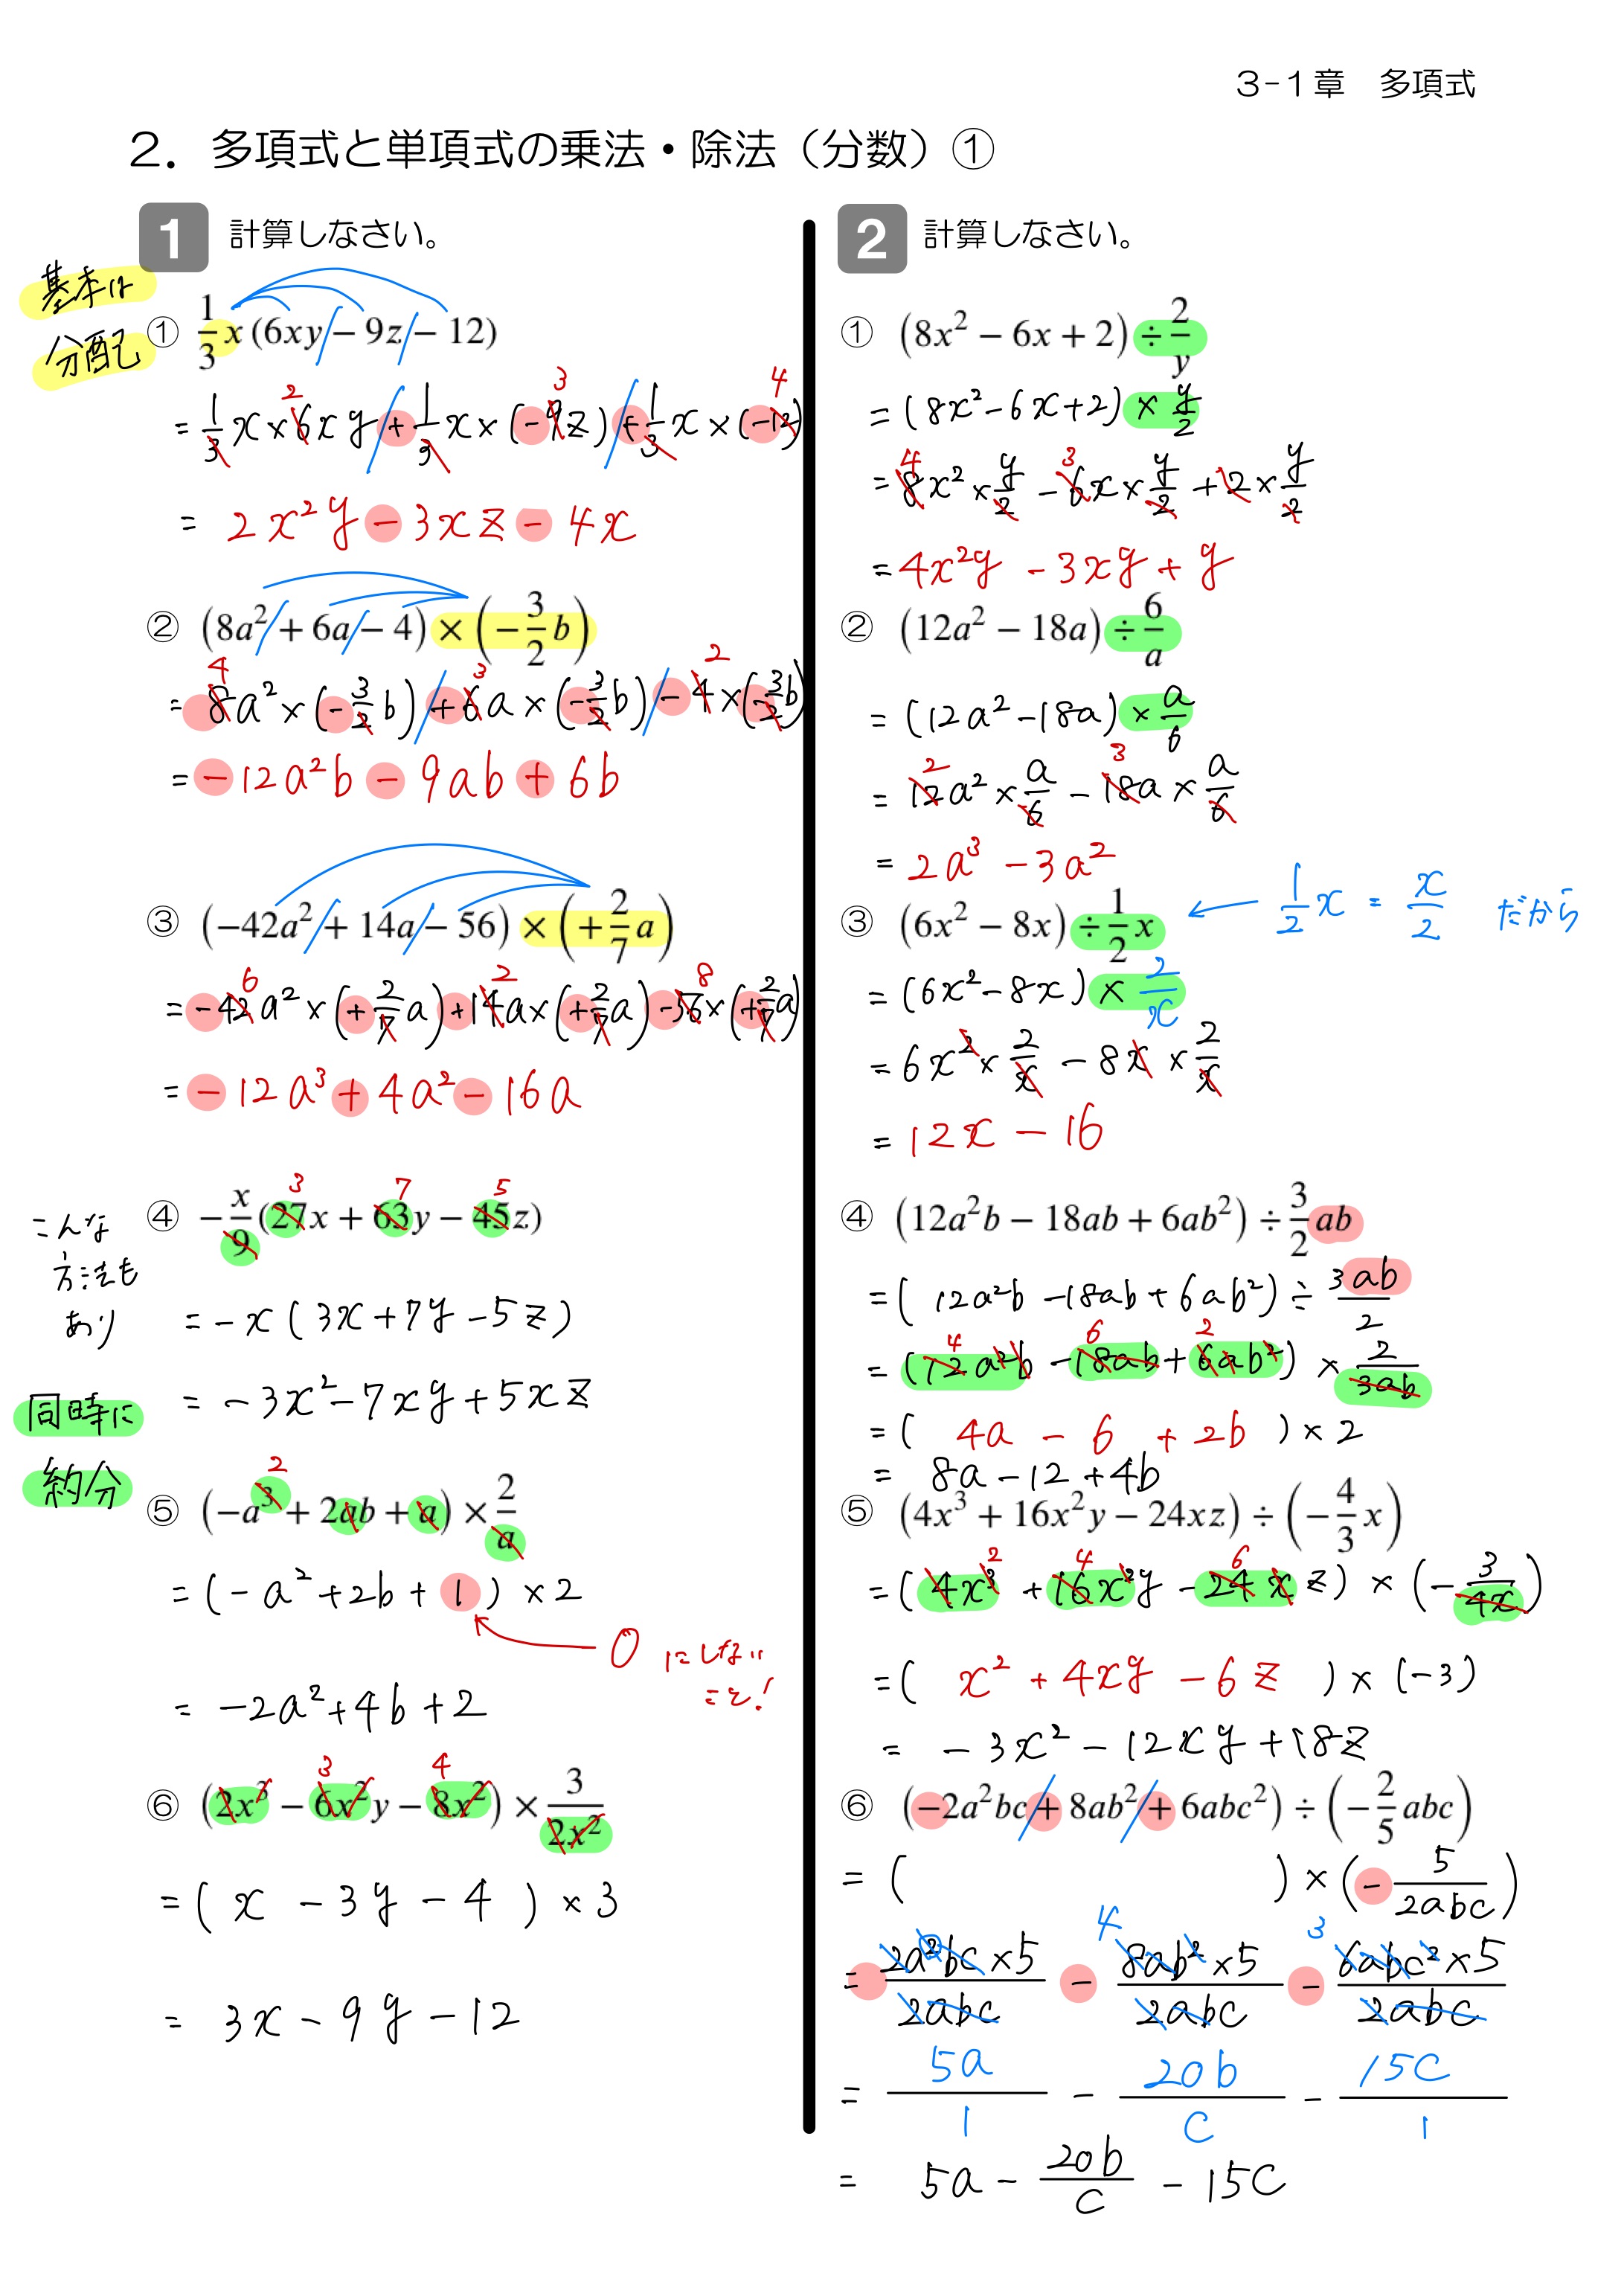 3-1章　多項式
2．多項式と単項式の乗法・除法（分数）①
1　計算しなさい。
基本は
分配
① 1/3 x (6xy − 9z − 12)
= 1/3 x × 6xy + 1/3 x × (−9z) + 1/3 x × (−12)
2 3 4
= 2x²y − 3xz − 4x
② (8a² + 6a − 4) × (−3/2 b)
4 3 2
= 8a² × (−3/2 b) + 6a × (−3/2 b) − 4 × (−3/2 b)
= −12a²b − 9ab + 6b
③ (−42a² + 14a − 56) × (+2/7 a)
6 2 8
= −42a² × (+2/7 a) + 14a × (+2/7 a) − 56 × (+2/7 a)
= −12a³ + 4a² − 16a
こんな
方法も
あり
3 7 5
④ −x/9 (27x + 63y − 45z)
= −x (3x + 7y − 5z)
= −3x² − 7xy + 5xz
同時に
約分
2
⑤ (−a³ + 2ab + a) × 2/a
= (−a² + 2b + 1) × 2
0 にしない
こと！
= −2a² + 4b + 2
3 4
⑥ (2x³ − 6x²y − 8x²) × 3/2x²
= (x − 3y − 4) × 3
= 3x − 9y − 12
2　計算しなさい。
① (8x² − 6x + 2) ÷ 2/y
= (8x² − 6x + 2) × y/2
4 3
= 8x² × y/2 − 6x × y/2 + 2 × y/2
= 4x²y − 3xy + y
② (12a² − 18a) ÷ 6/a
= (12a² − 18a) × a/6
2 3
= 12a² × a/6 − 18a × a/6
= 2a³ − 3a²
③ (6x² − 8x) ÷ 1/2 x ← 1/2 x = x/2 だから
= (6x² − 8x) × 2/x
= 6x² × 2/x − 8x × 2/x
= 12x − 16
④ (12a²b − 18ab + 6ab²) ÷ 3/2 ab
= (12a²b − 18ab + 6ab²) ÷ 3ab/2
4 6 2
= (12a²b − 18ab + 6ab²) × 2/3ab
= (4a − 6 + 2b) × 2
= 8a − 12 + 4b
⑤ (4x³ + 16x²y − 24xz) ÷ (−4/3 x)
2 4 6
= (4x³ + 16x²y − 24xz) × (−3/4x)
= (x² + 4xy − 6z) × (−3)
= −3x² − 12xy + 18z
⑥ (−2a²bc + 8ab² + 6abc²) ÷ (−2/5 abc)
= (　　) × (−5/2abc)
4 3
= 2a²bc×5/2abc − 8ab²×5/2abc − 6abc²×5/2abc
= 5a/1 − 20b/c − 15c/1
= 5a − 20b/c − 15c